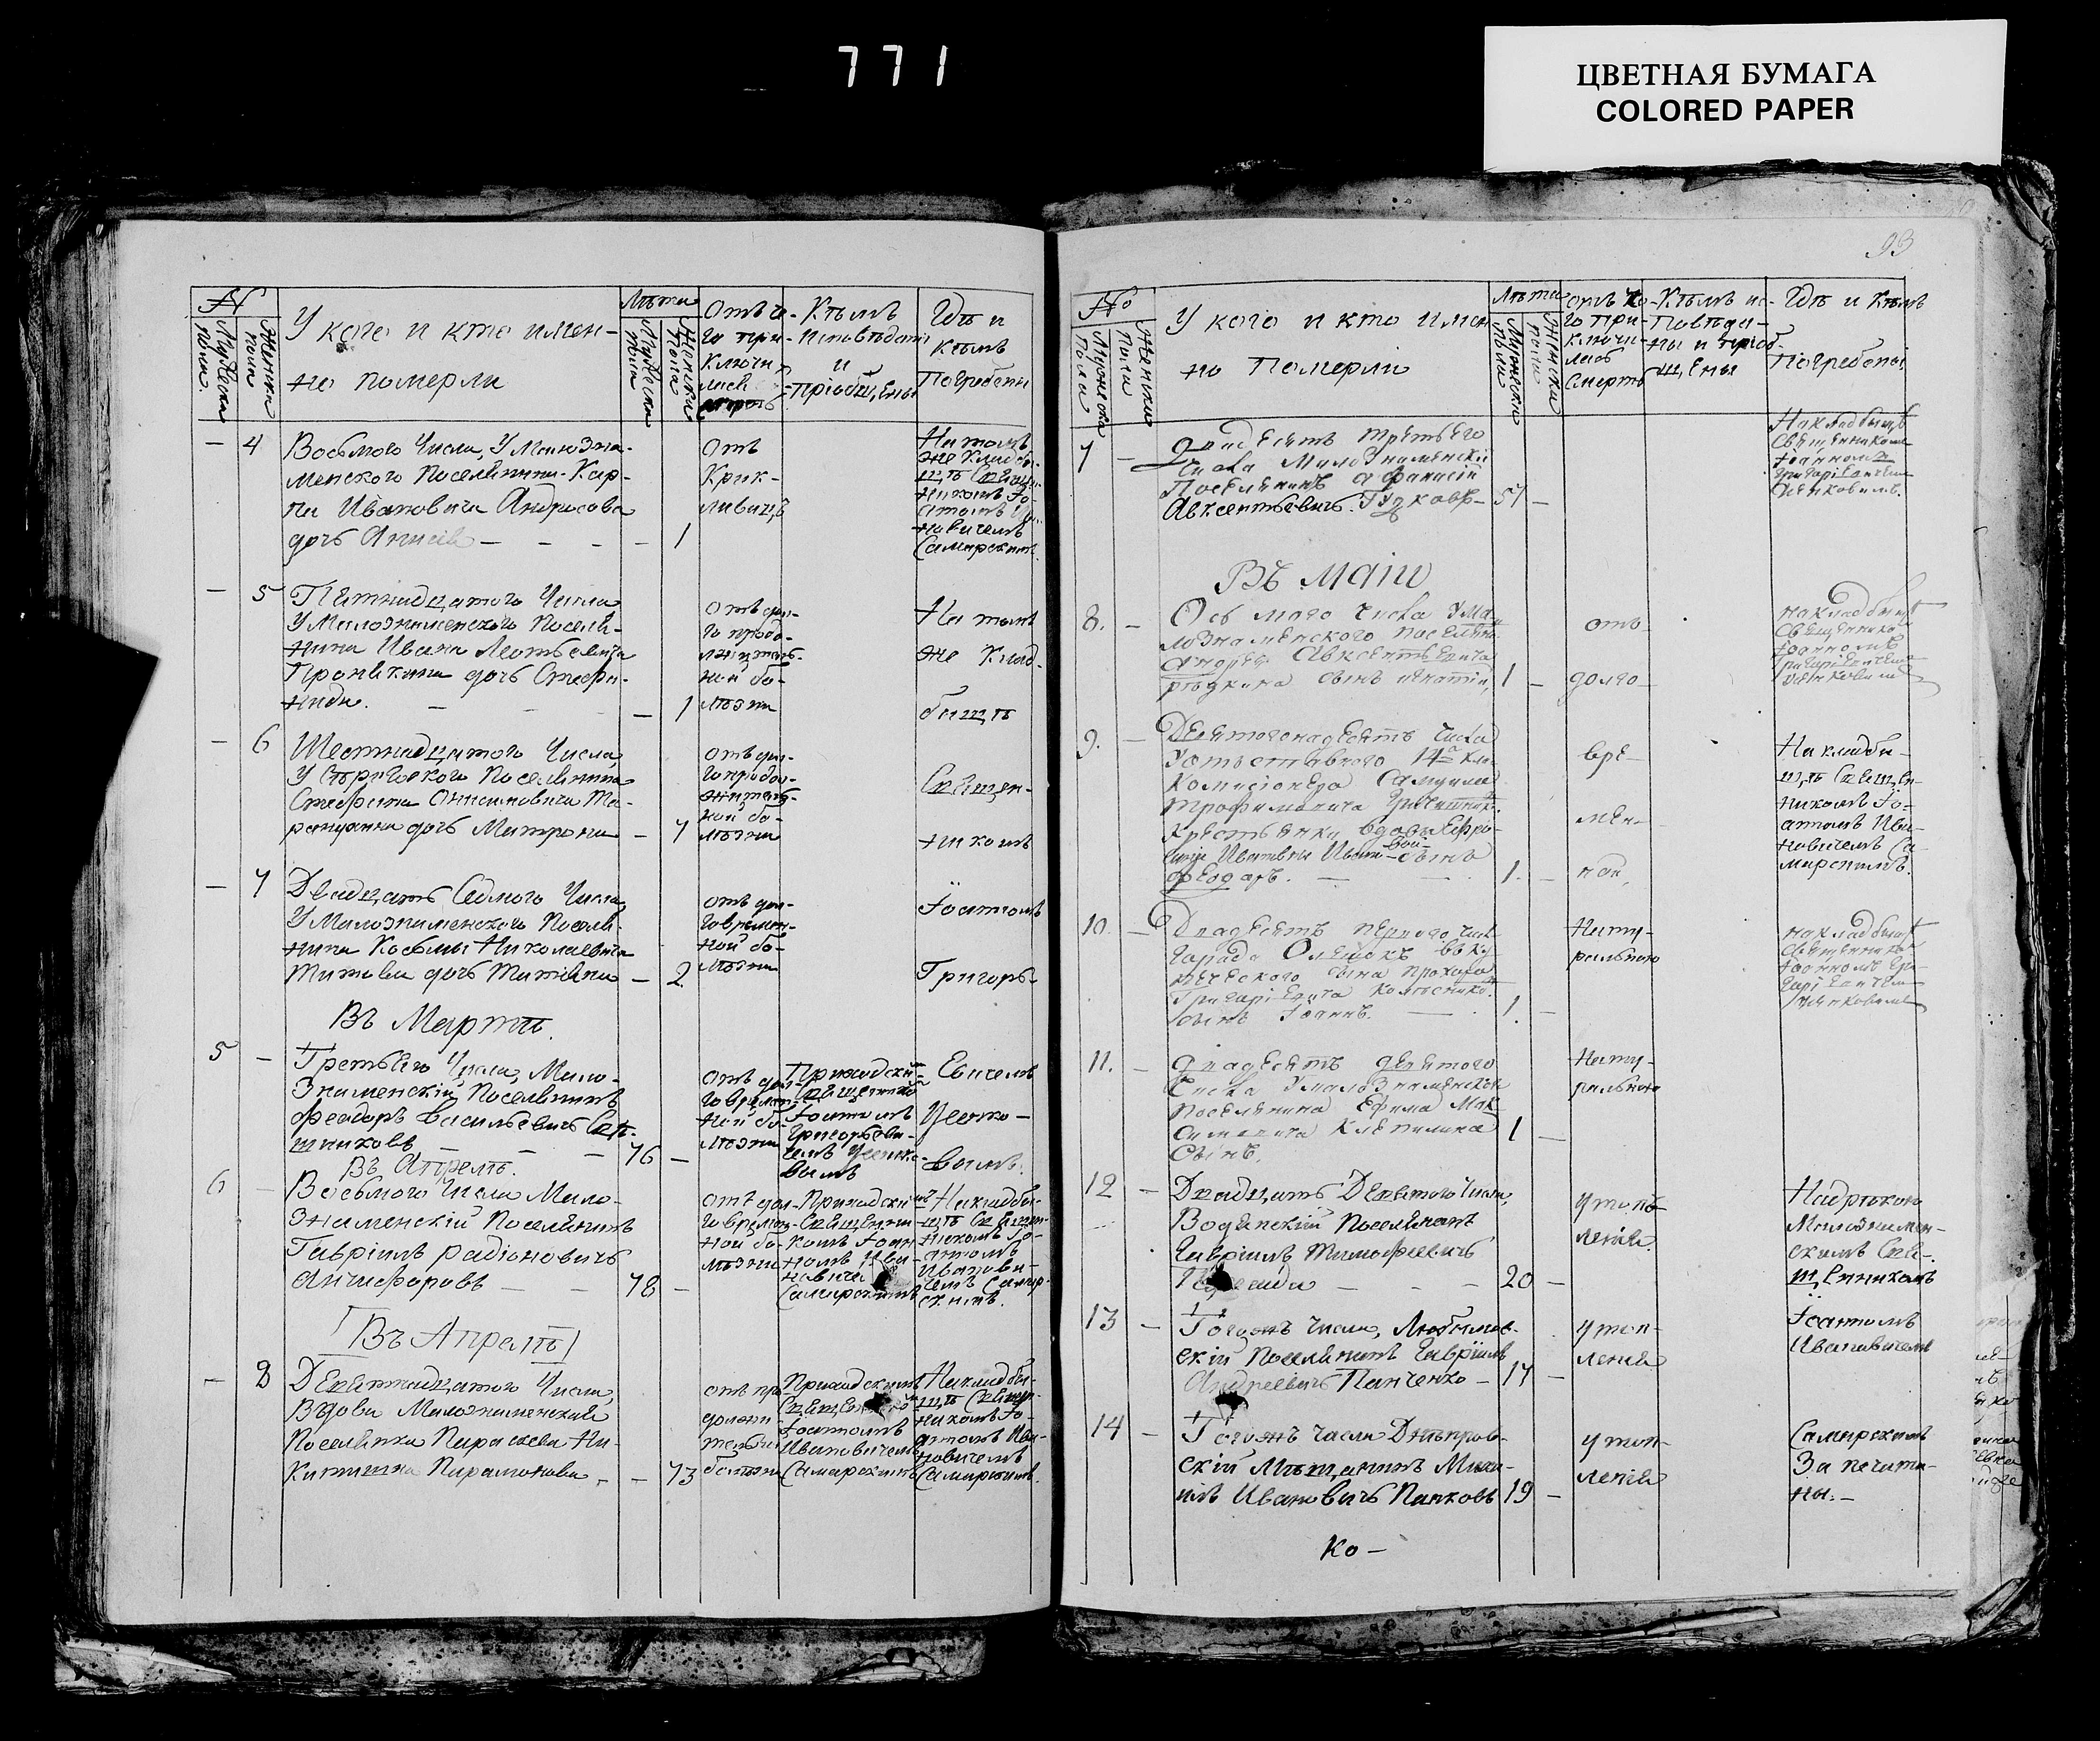 771
ЦВЕТНАЯ БУМАГА
COLORED PAPER
№
Мужеска
пола.
Женска
пола
У кого и кто имен-
но померли
Лѣта
Мужеска
пола
Женска
пола
Отъ че-
го при-
ключи
лась
смерть
Кѣмъ
исповѣдан
и
пріобщены
Гдѣ и
кѣмъ
Погребены
— 4 Восьмого Числа, У Малозна-
менского Поселянина Кар-
па Ивановича Андросова
дочь — — — — 1
Отъ
Крик-
ливицъ
На томъ
же кладби-
щѣ Священ-
никомъ Іо-
анномъ
новичемъ
Самарскимъ.
— 5 Пятнадцатого Числа
У Малознаменского Поселя-
нина Ивана Леонтьевича
дочь Стефа-
нида. — — — 1
Отъ дол-
го продо-
лжитель-
ной бо-
лѣзни
На томъ
же Клад-
бищѣ
— 6 Шестнадцатого Числа,
У Поселянина
Стефана Онисимовича
дочь Матрона — 7
Отъ дол-
го продол-
житель-
ной бо-
лѣзни
Священ-
никомъ
— 7 Двадцать Седмого Числа,
У Малознаменского Поселя-
нина Косьмы Николаевича
Титова дочь Татіана — 2.
Отъ дол-
говремен-
ной бо-
лѣзни
Іоанномъ
Григорь-
Въ Мартѣ.
5 — Третьего Числа, Мало-
Знаменскій Поселянинъ
Феодоръ Васильевичъ
— — — 76 —
Отъ дол-
говремен-
ной бо-
лѣзни
Приходским
Священнико
Іоанномъ
Григорьеви-
чемъ
вымъ
Евичемъ
Усенко-
вымъ.
Въ Апрелѣ.
6 — Восьмого Числа Мало-
Знаменскій Поселянинъ
Гавріилъ Радіоновичъ
Анциферовъ — — 78 —
Отъ дол-
говремен-
ной бо-
лѣзни
Приходским
Священни-
комъ Іоан-
номъ Ива-
новиче
Самарскимъ
На кладби-
щѣ Священ-
никомъ Іо-
анномъ
Иванови-
чемъ Самар-
скимъ.
Въ Апрелѣ
— 8 Девятнадцатого Числа,
Вдова Малознаменская
Поселянка Параскева Ни-
китишна Парамонова — — 73
отъ про
должи-
тельн
болѣзни
Приходскимъ
Священнико
Іоанномъ
Ивановичемъ
Самарскимъ
На кладби-
щѣ Священ-
никомъ Іо-
анномъ Ива-
новичемъ
Самарскимъ.
93
№
Мужеска
пола
Женска
пола
У кого и кто имен
но Померли
Лѣта
Мужеска
пола
Женска
пола
отъ че-
го при-
ключи-
лась
смерть
Кѣмъ ис-
повѣда-
ны и пріоб-
щены
Гдѣ и Кѣмъ
Погребены
7 — двадесять третьего
Числа Малознаменскій
Поселянинъ Афанасій
Авксентьевичъ Гудковъ — 57 —
На кладбищѣ
Священникомъ
Іоанномъ
Григоріевичемъ
Усенковымъ.
Въ маіи
8. — Осьмого числа У Ма-
лознаменского поселян.
Андрея Авксентьевича
сынъ 1 —
отъ
долго
на кладбищѣ
Священнико
Іоанномъ
Григоріевичем
Усенковым
9. — Девятогонадесять числа
У отъставного 14го кл.
Комисіонера Самуила
Трофимовича
Крестьянки вдовы Ефро-
сыніи Ивановны Иван-вой сынъ
Феодоръ. — — 1. —
вре-
мен-
ной,
На кладби-
щѣ Священ-
никомъ Іо-
анномъ Ива-
новичемъ Са-
марскимъ.
10. — Двадесять первого чис
города Олешокъ въ ку-
печеского сына Прохора
Григоріевича Колеснико.
сынъ Іоаннъ. — 1. —
Нату-
рально
на кладбищѣ
Священнико
Іоанномъ Гри-
горіевичем
Усенковым
11. — двадесять девятого
Числа У малознаменского
поселянина Ефима Мак
симовича
Сынъ, 1 —
Нату-
рально
12 — Двадцать Девятого Числа,
Водянскій Поселянинъ
Гавріилъ Тимофеевичъ
— — — 20 —
утоп-
ленія.
Надъ рѣкою
Малознамен-
скимъ Свя-
щенникомъ
13 — Тогожъ Числа, Любимов-
скій Поселянинъ Гавріилъ
Андреевичъ Панченко — 17 —
утоп-
ленія
Іоанномъ
Ивановичемъ
14 — Тогожъ Числа Днѣпров-
скій Мѣщанинъ Миха-
илъ Ивановичъ Панковъ 19 —
утоп-
ленія
Самарскимъ
Запечата-
ны. —
Ко —